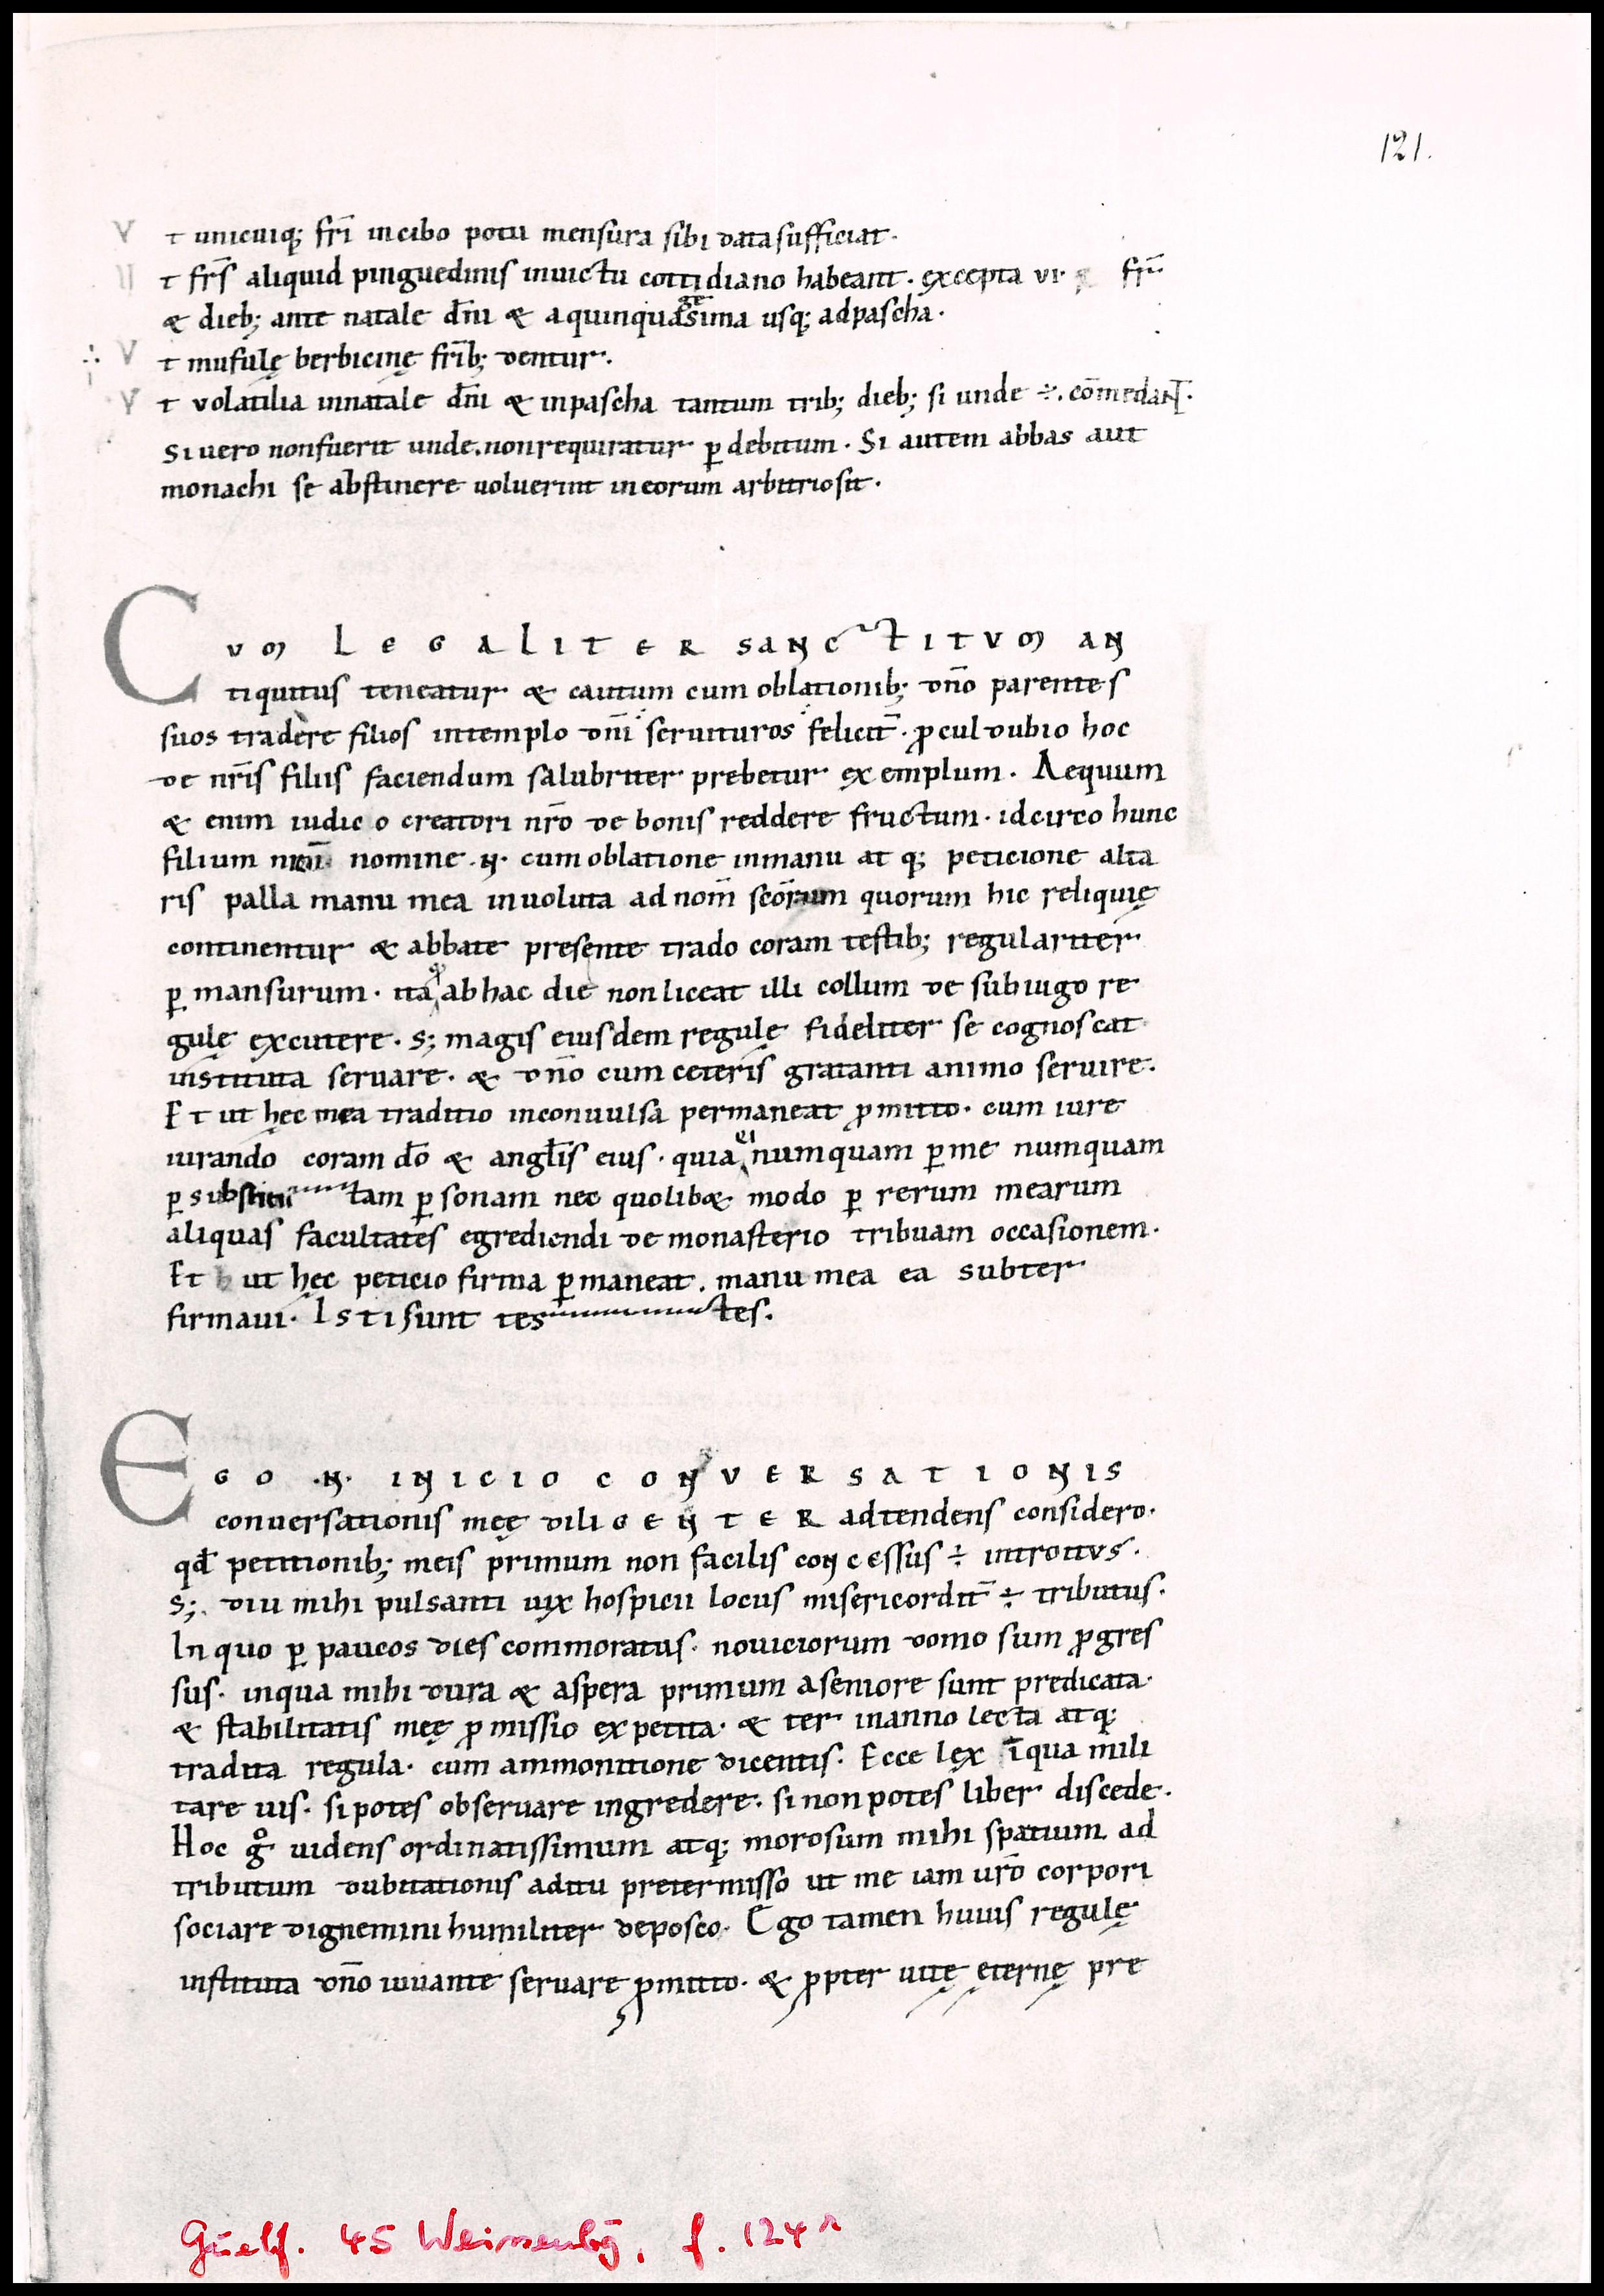 121.
V t unicuiq; frī incibo potu mensura sibi data sufficiat.
t frs̄ aliquid pinguedinis inuictu cottidiano habeant. excepta vi. frū
& dieb; ante natale dn̄i & a quinquagesima usq; adpascha.
V t mufulę berbicinę frīb; dentur.
V t volatilia innatale dn̄i & inpascha tantum trib; dieb; si unde ÷. com̄edaNT.
Si uero nonfuerit unde. nonrequiratur ꝑ debitum. Si autem abbas aut
monachi se abstinere uoluerint ineorum arbitrio sit.
CVM LEGALITER SANCTITVM AN
tiquitus teneatur & cautum cum oblationib; dn̄o parentes
suos tradere filios intemplo dn̄i seruituros felicit̄. ꝓcul dubio hoc
de nr̄is filiis faciendum salubriter prebetur exemplum. Aequum
& enim iudico creatori nr̄o de bonis reddere fructum. idcirco hunc
filium nomine .N. cum oblatione inmanu atq; peticione alta
ris palla manu mea inuoluta ad nom̄ sc̄orum quorum hic reliquię
continentur & abbate presente trado coram testib; regulariter
ꝑmansurum. ita ꝗ abhac die non liceat illi collum de sub iugo re
gulę excutere. s; magis eiusdem regulę fideliter se cognoscat
instituta seruare. & dn̄o cum ceteris gratanti animo seruire.
Et ut hęc mea traditio inconuulsa permaneat ꝓmitto. cum iure
iurando coram dō & angl̄is eius. quia ei numquam ꝑ me numquam
ꝑ tam ꝑsonam nec quolib& modo ꝑ rerum mearum
aliquas facultates egrediendi de monasterio tribuam occasionem.
Et ut hęc peticio firma ꝑmaneat. manu mea ea subter
firmaui. Isti sunt testes.
EGO .N. INICIO CONVERSATIONIS
conuersationis meę diliGENTER adtendens considero.
qd̄ petitionib; meis primum non facilis concessus ÷ introitus.
s;. diu mihi pulsanti uix hospicii locus misericordit̄ ÷ tributus.
In quo ꝑ paucos dies commoratus. nouiciorum domo sum ꝓgres
sus. inqua mihi dura & aspera primum a seniore sunt predicata.
& stabilitatis meę ꝓmissio expetita. & ter inanno lecta atq;
tradita regula. cum ammonitione dicentis. Ecce lex īqua mili
tare uis. si potes obseruare ingredere. si non potes liber discede.
Hoc gͦ uidens ordinatissimum atq; morosum mihi spatium ad
tributum dubitationis aditu pretermisso ut me iam ur̄o corpori
sociare dignemini humiliter deposco. Ego tamen huius regulę
instituta dn̄o iuuante seruare ꝓmitto. & ꝓpter uitę eternę pre
Guelf. 45 Weissenbg. f. 124r